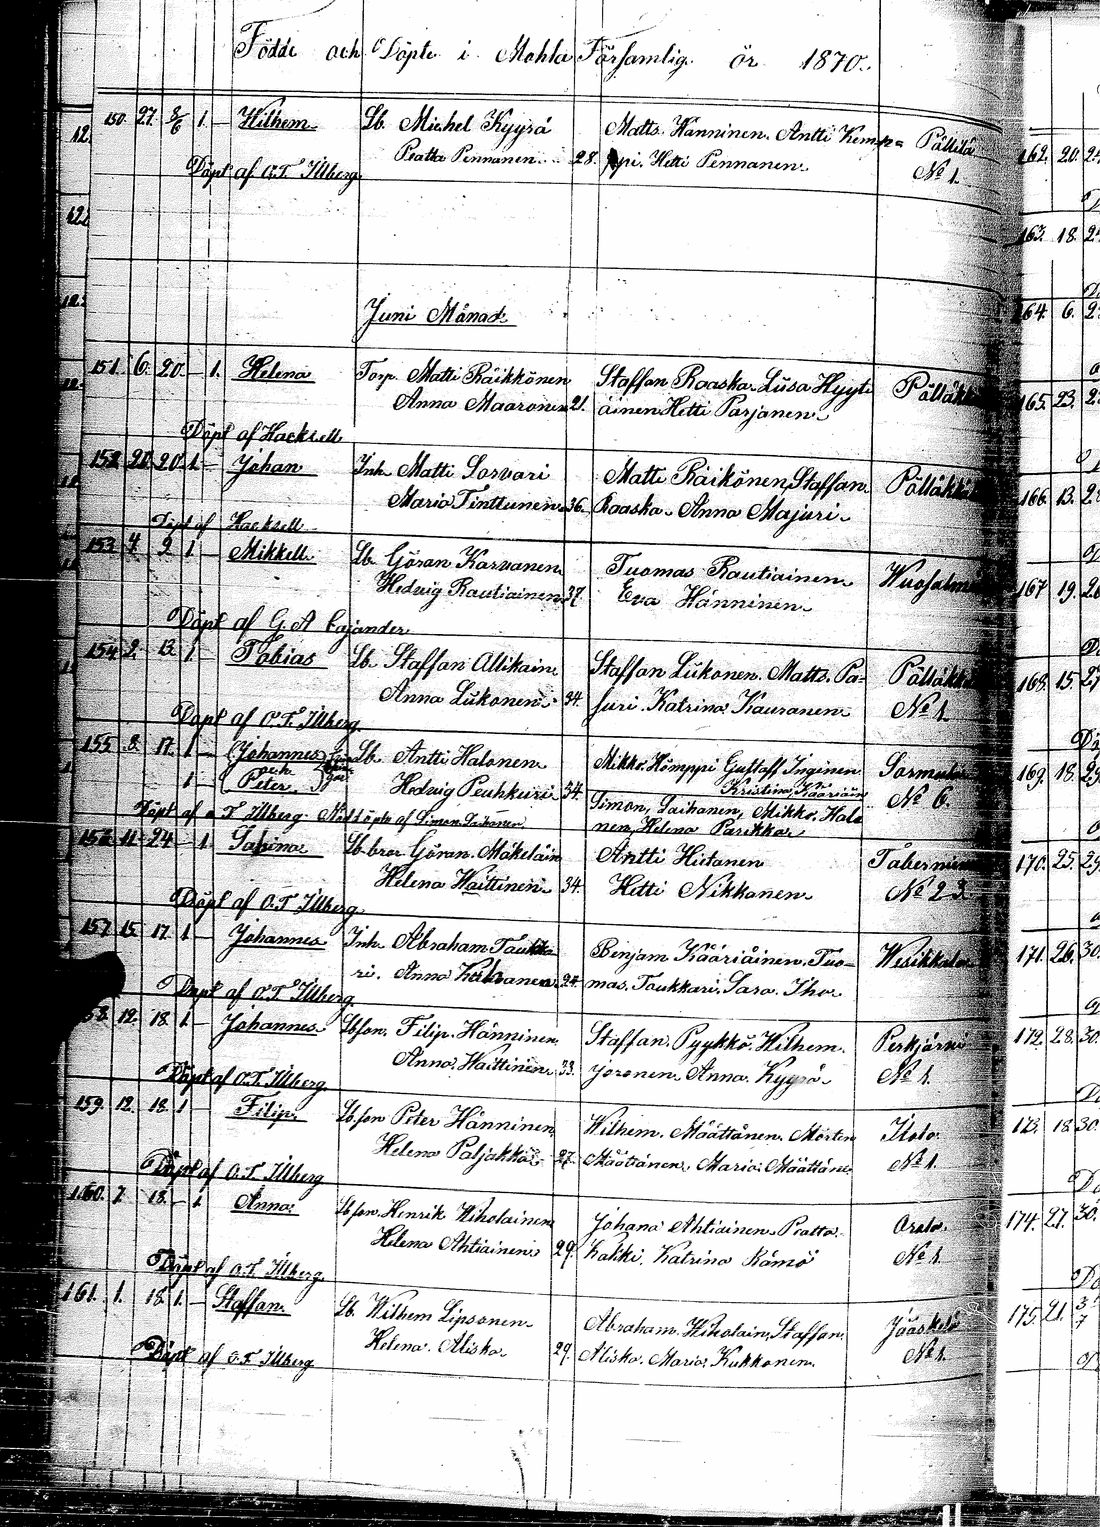 Födde och Döpte i Mohla Församlig år 1870.
150. 27. 2/6 1. — Wilhem Lb. Michel Kyyrä Matts. Hänninen. Antti Kemp= Pällilä
Beatta Pennanen 28. ppi. Hetti Pennanen. No 1.
Döpt af O.T. Illberg
Juni Månad
151. 6. 20. — 1. Helena Torp. Matti Räikkönen Staffan Raaska. Liisa Hyyti Pölläkkä
Anna Maaronen 21. äinen Hetti Parjanen.
Döpt af Hacksell
152. 20. 20. 1. — Johan Inh. Matti Sorvari Matti Räikönen Staffan
Maria Tinttunen 36. Raaska. Anna Majuri.
Döpt af Hacksell
153. 4. 9. 1 — Mikkell Lb. Göran Karvanen Tuomas Rautiainen
Hedvig Rautiainen 37. Eva Hänninen
Döpt af G. A Cajander
154. 2. 13. 1 — Tobias Lb. Staffan Allikain Staffan Liikonen. Matts. Pa-
Anna Liikonen 34. juri. Katrina Kauranen No 1.
Döpt af O.T. Illberg
155. 3. 17. 1 — Johannes Lb. Antti Halonen Mikko Hömppi Gustaff Inginen
Kristin, Kääriäin
1 — och Peter Hedvig Peuhkuri 34. No 6.
Simon, Saikanen, Mikko. Halo
Döpt af O T Illberg. Nöddöpte af Simon Saikanen nen, Helena Parikka
156. 11. 24 — 1. Sabina Lb. bror Göran. Mäkeläin Antti Hietanen
Helena Waittinen 34. Hetti Nikkanen No 23.
Döpt af O.T Illberg
157. 15. 17. 1 — Johannes Inh. Abraham Taukka Benjam Kääriäinen. Tuo-
ri. Anna 24. mas. Taukkari. Sara. Iho.
Döpt af O.T. Illberg
58. 12. 18. 1 — Johannes Lbson. Filip. Hänninen Staffan. Pyykkö. Wilhem. Perkjärvi
Anna. Haittinen 33. Joronen. Anna. Kyyrä No 1.
Döpt af O.T. Illberg
159. 12. 18. 1 — Filip. Lb. son Peter Hänninen Wilhem. Määttänen. Mårten
Helena Paljakka 27. Määttänen. Maria. Määttäne No 1.
Döpt af O.T. Illberg
160. 7. 18. — 1 Anna. Lb. son. Henrik Wiholainen Johana Ahtiainen. Beatta.
Helena Ahtiainen 29. Kakki. Katrina Rämö No 1.
Döpt af O.T. Illberg
161. 1. 18. 1. — Staffan. Lb. Wilhem Lipsonen Abraham. Wiholain. Staffan. Jääskelä
Helena. Aliska. 29. Aliska. Maria. Kukkonen. No 1.
Döpt af O.T. Illberg
162. 20.
163. 18.
164. 6.
165. 23.
166. 13.
167. 19.
168. 15.
169. 18.
170. 25.
171. 26. 30.
172. 28. 30.
173. 18. 30.
174. 27. 30.
175. 21.